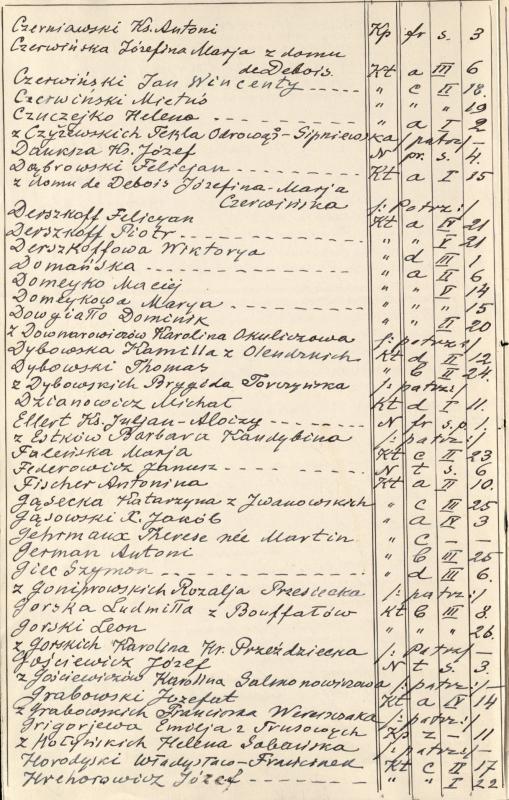 Czerniawski Ks. Antoni Kp fr s. 3
Czerwińska Józefina Marja z domu
de Debois. Kt a III 6
Czerwiński Jan Wincenty " c II 18.
Czerwiński Mietuś " " " 19
Czuczejko Helena " a I 2
z Czyżewskich Tekla Odrowąż-Sipniewska /patrz/ —
Dauksza Ks. Józef N pr. s. 4.
Dąbrowski Felicjan Kt a I 15
z domu de Debois Józefina-Marja
Czerwińska /: patrz:/
Derszkoff Felicyan Kt a IV 21
Derszkoff Piotr " " V 21
Derszkoffowa Wiktorya " d III 1
Domańska " a II 6
Domeyko Maciej " " V 14
Domeykowa Marya " " " 15
Dowgiałło Dominik " " II 20
z Downarowiczów Karolina Okuliczowa /: patrz:/
Dybowska Kamilla z Olendzkich Kt d II 12
Dybowski Thomas " b II 24.
z Dybowskich Brygida Torczyńska /: patrz:/
Dzianowicz Michał Kt d I 11.
Ellert Ks. Juljan-Aloizy N fr s.p. 1.
z Estków Barbara Kandybina /: patrz:/
Faleńska Marja Kt c II 23
Federowicz Janusz N t s. 6
Fischer Antonina Kt a II 10.
Gąsecka Katarzyna z Iwanowskich " c III 25
Gąsowski X. Jakób " a IV 3
Gehrmaux Therese née Martin " c — —
German Antoni " b III 25
Giec Szymon " d III 6.
z Goniprowskich Rozalja Przesiecka /: patrz:/
Gorska Ludmiłła z Bouffałów Kt b III 8.
Gorski Leon " " " 26.
z Gorskich Karolina Hr. Przeździecka /: patrz/ —
Gojciewicz Józef N t s. 3.
z Gojciewiczów Karolina Salmonowiczowa /: patrz:/
Grabowski Jozefat Kt a IV 14
z Grabowskich Franciszka /: patrz:/
Grigorjewa Emilja z Trusowych Kp z — 11
z Hołyńskich Helena Sabańska /: patrz:/ —
Horodyski Władysław-Franciszek Kt c II 17
Hrehorowicz Józef " " I 22